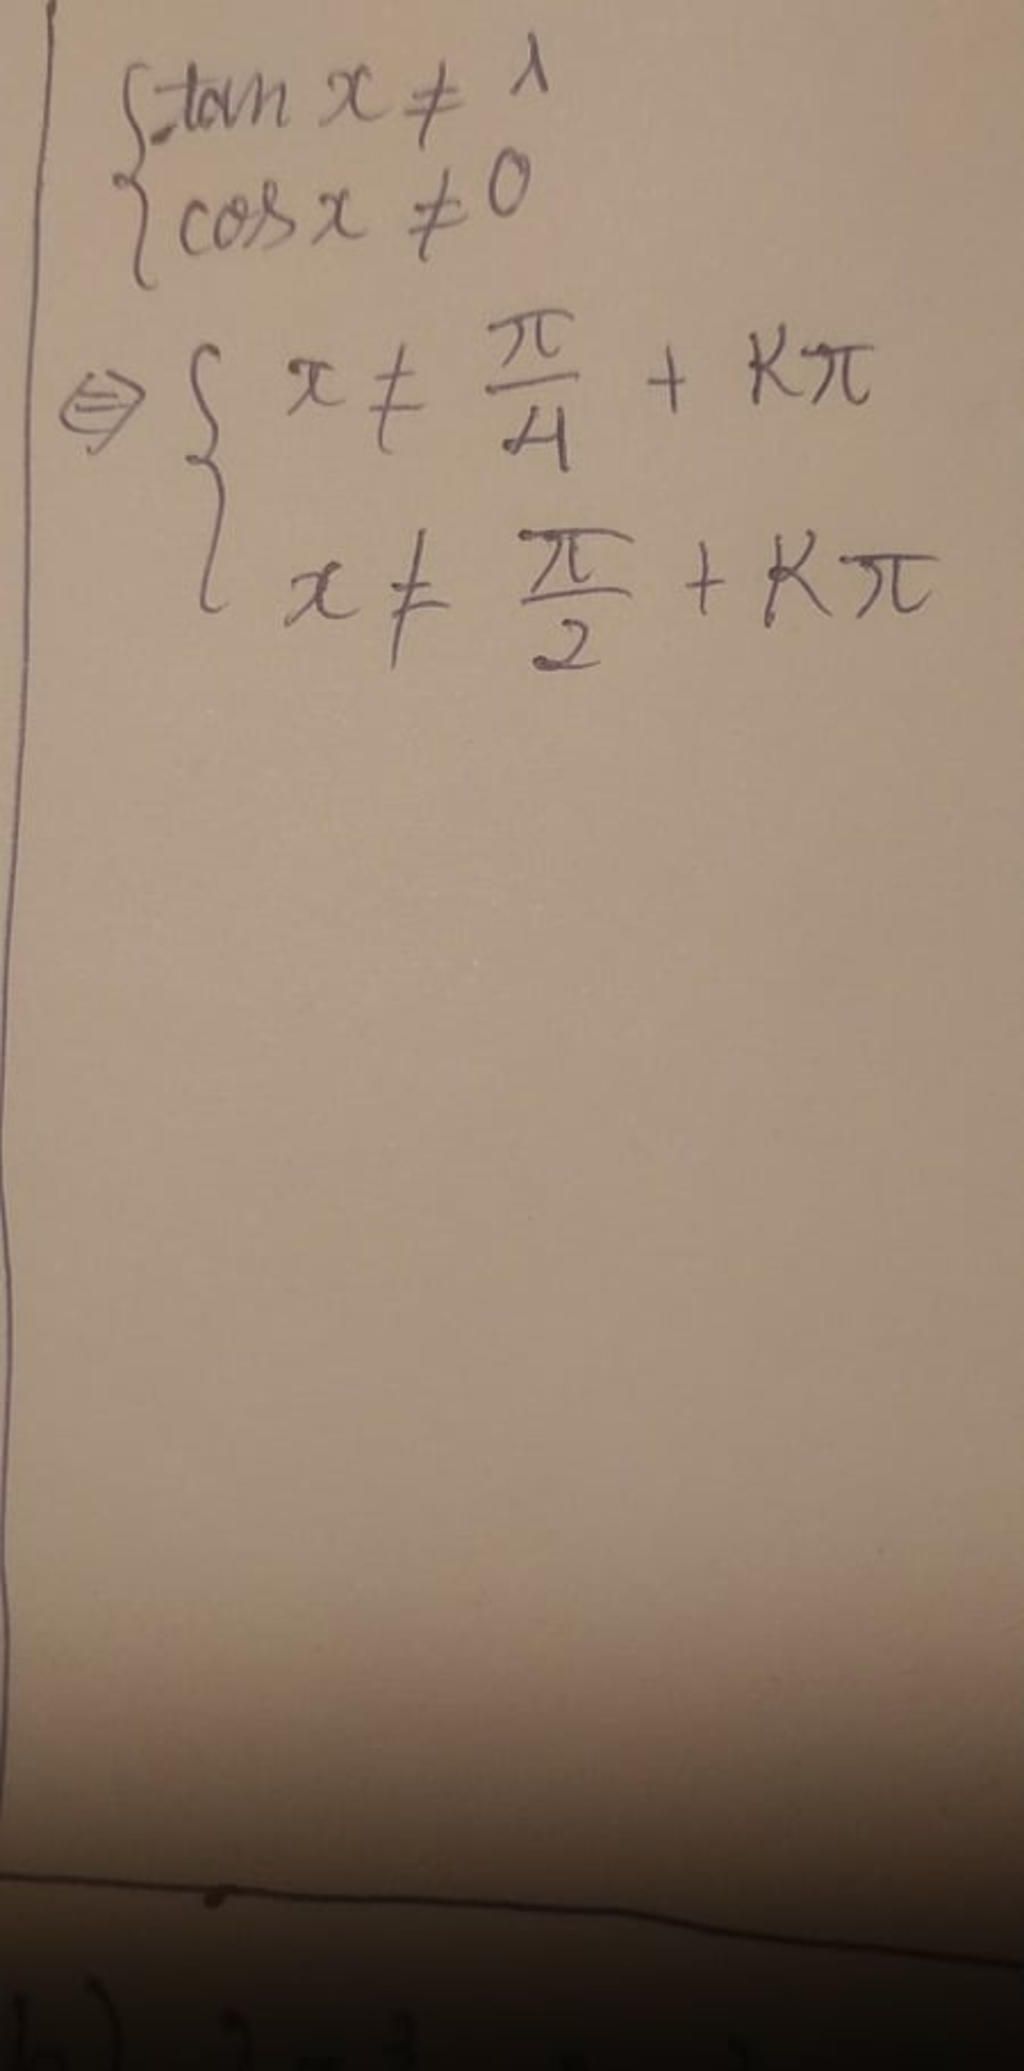 { tan x ≠ 1
{ cos x ≠ 0
⇔ { x ≠ π/4 + Kπ
{ x ≠ π/2 + Kπ